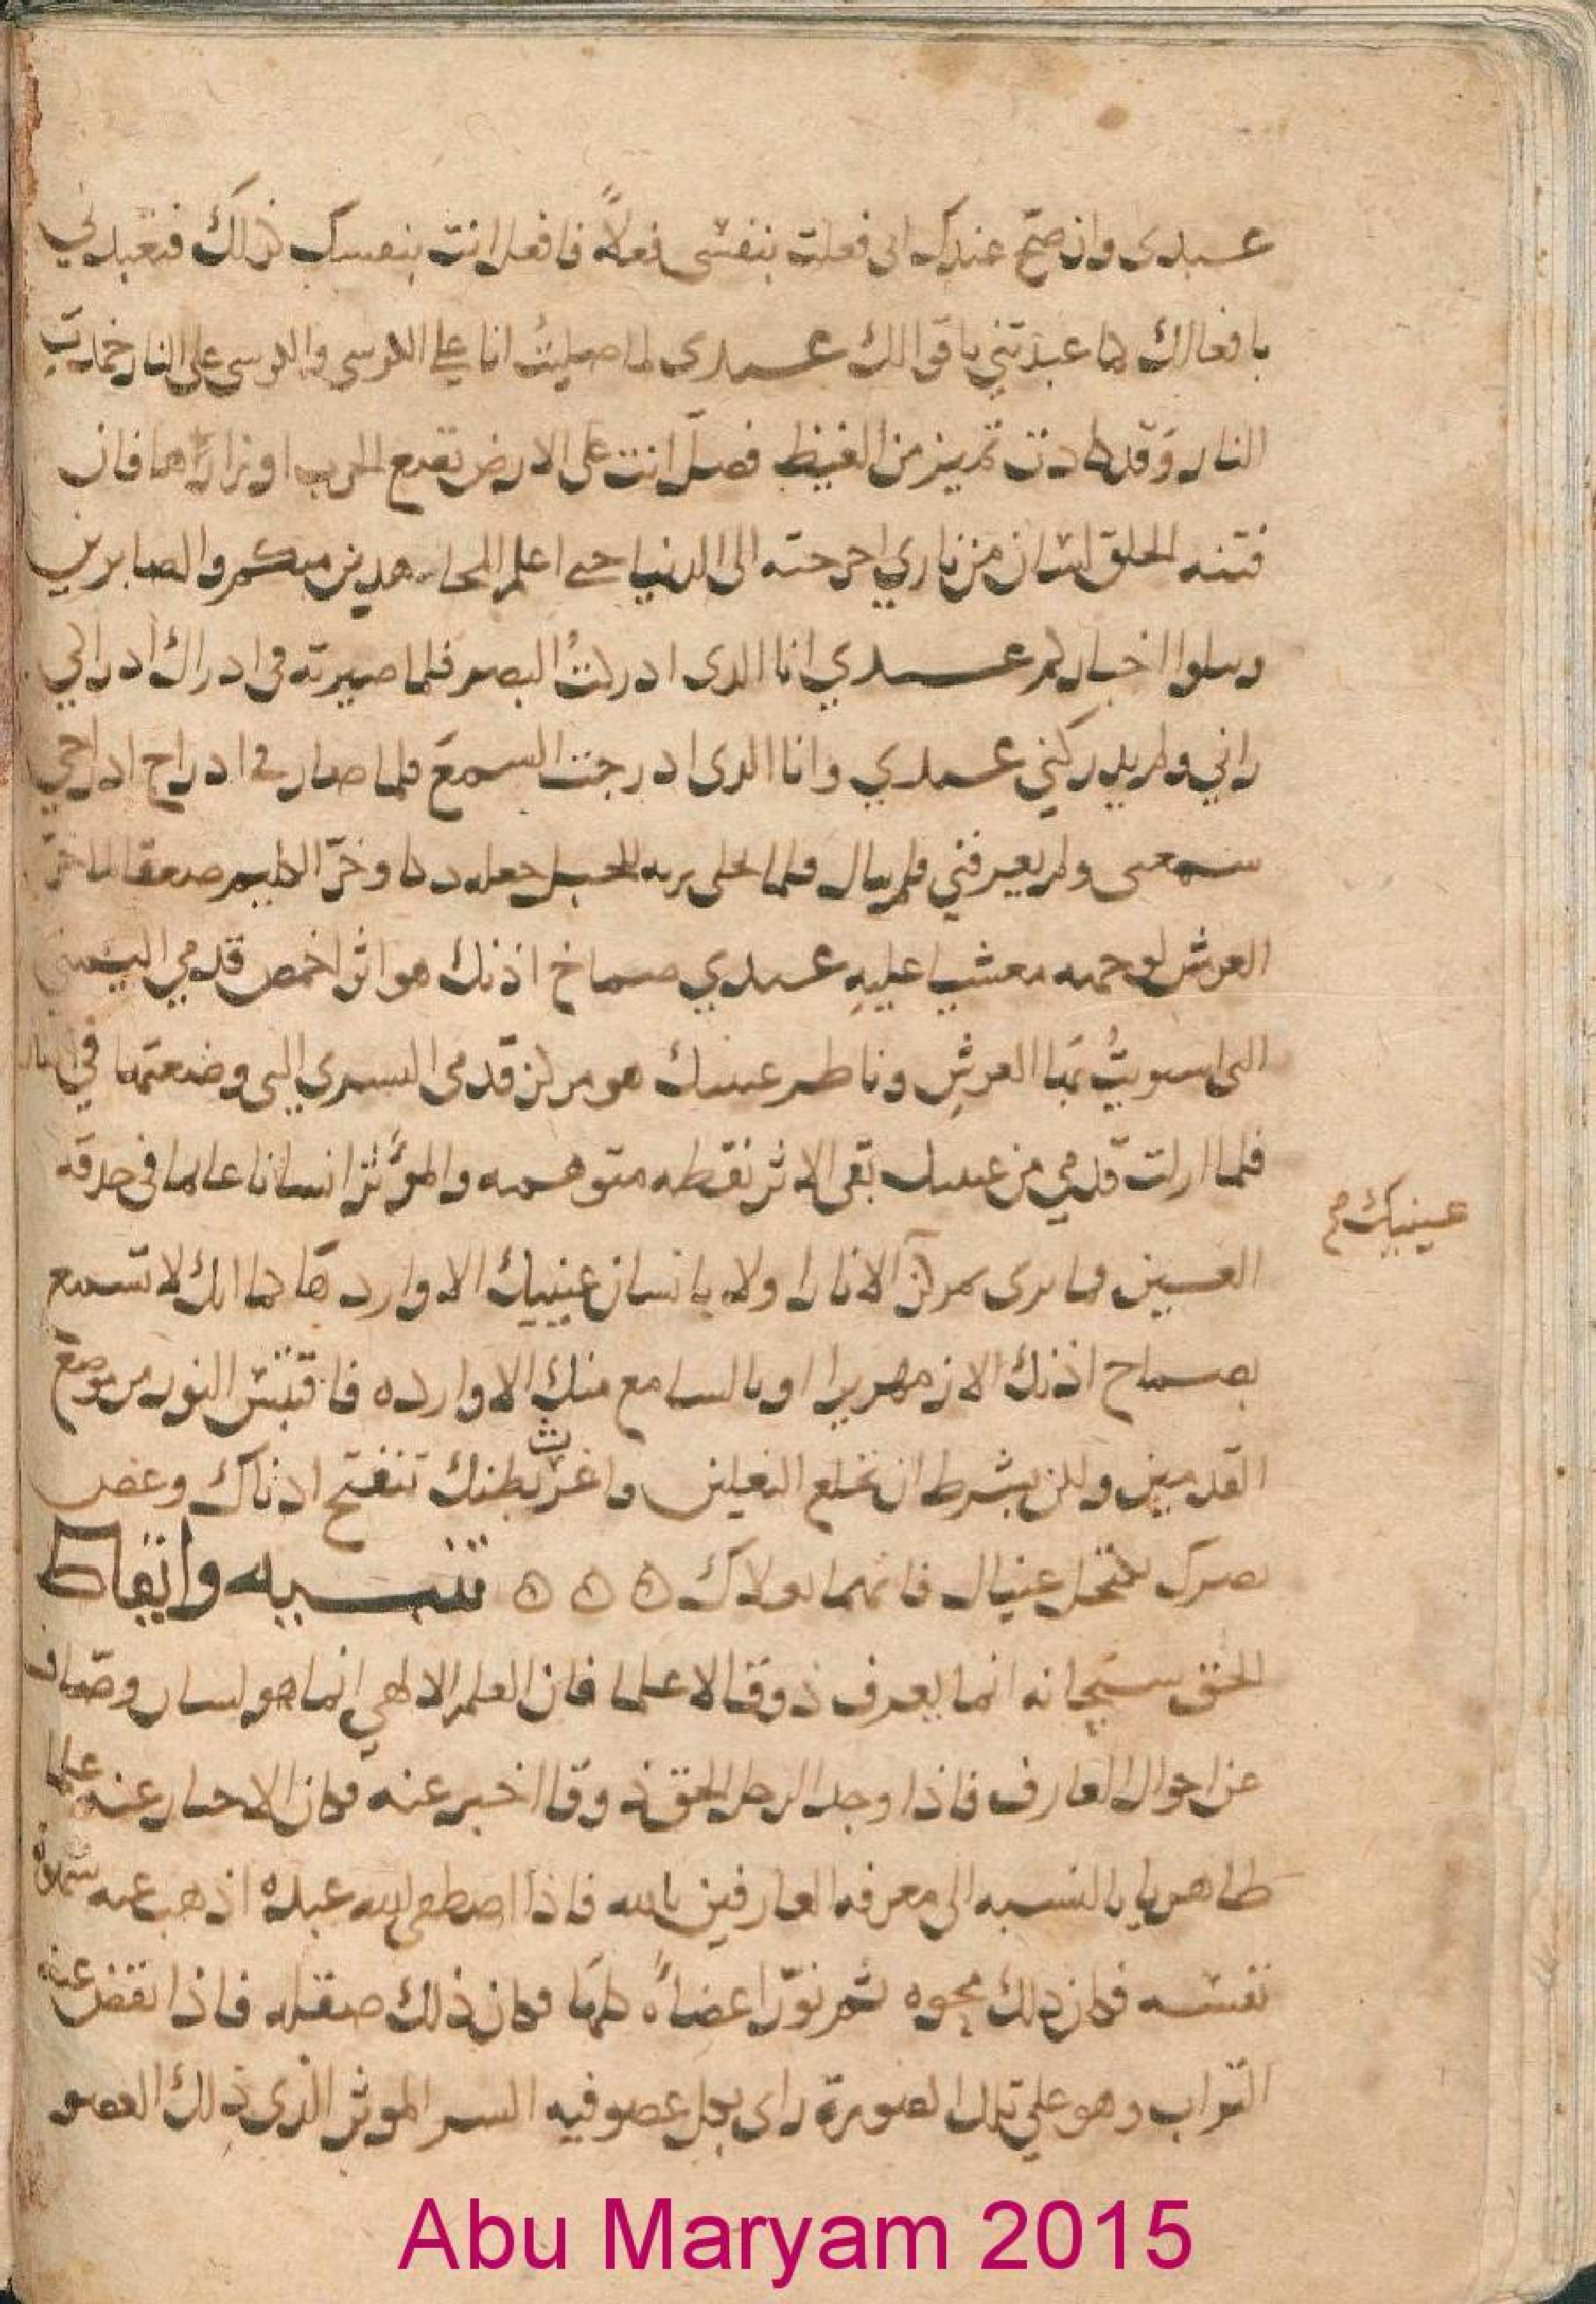 عبدي وان صح عندك اني فعلت بنفسي فعلاً فافعل انت بنفسك ذلك فتعبدني
بافعالك كما عبدتني باقوالك عبدي لما صليتُ انا علي الكرسي والكرسي على النار خمدت
النار وقد كادت تميز من الغيظ فصلّ انت على الارض تضع الحرب اوزارها فان
فتنه الخلق لسان من ناري اخرجته الى الدنيا حتى اعلم المجاهدين منكم والصابرين
وبلوا اخباركم عبدي انا الذى ادركتُ البصر فلما صيرته فى ادراك ادراكي
راني ولم يدركني عبدي وانا الذى ادرجت السمع فلما صار في ادراج ادراجي
سمعنى ولم يعرفني فلم يبال فلما تجلى ربه للجبل جعله دكا وخرّ الكليم صعقا كما خرّ
العرش لوجهه مغشيا عليه عبدي صماخ اذنك هو اثر اخمص قدمي اليمنى
التى استويتُ بها العرش وناظر عينيك هو مركز قدمى اليسرى التى وضعتها في النار
فلما ازلت قدمي من عينيك بقى الاثر نقطه متوهمه والمؤثر انسانا عالما فى حدقه
عينيك صح
العين فما ترى بمركز الا نارا ولا بانسان عينيك الا واردها كما انك لا تسمع
بصماخ اذنك الا زمهريرا او بالسامع منك الا وارده فاقتبس النور من موضع
القدمين ولكن بشرط ان تخلع النعلين واغرث بطنك تنفتح اذناك وغض
بصرك تكتحل عيناك فانهما بولاك ۞ ۞ ۞ تنبيه وايقاظ
الحق سبحانه انما يعرف ذوقا لا علما فان العلم الالهي انما هو لسان وصاف
عن احوال العارف فاذا وجد الرجل الحق ذوقا اخبر عنه فكان الاخبار عنه علما
ظاهريا بالنسبه الى معرفه العارفين بالله فاذا اصطفى الله عبده اذهب عنه شهوة
نفسه فكان ذلك محوه ثم نوّر اعضاه كلها فكان ذلك صقله فاذا نفض عنه
التراب وهو علي تلك الصورة راى بكل عضو فيه السر الموثر الذى ذلك العضو
Abu Maryam 2015